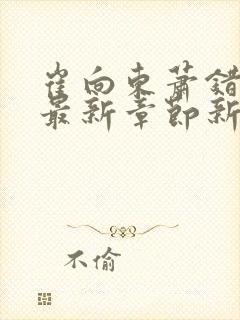 崔向东萧错
最新章节新
不偷